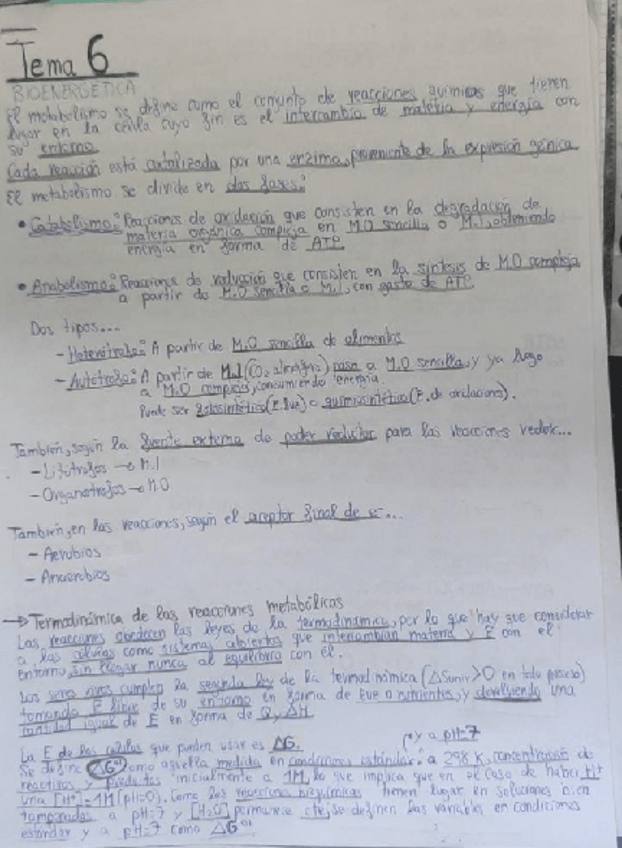 Tema 6
BIOENERGÉTICA
El metabolismo se define como el conjunto de reacciones químicas que tienen
lugar en la célula cuyo fin es el intercambio de materia y energía con
su entorno
Cada reacción está catalizada por una enzima, proveniente de la expresión génica
El metabolismo se divide en dos fases:
• Catabolismo: Reacciones de oxidación que consisten en la degradación de
materia orgánica compleja en M.O sencilla o M.I, obteniendo
energía en forma de ATP.
• Anabolismo: Reacciones de reducción que consisten en la síntesis de M.O compleja
a partir de M.O sencilla o M.I, con gasto de ATP.
Dos tipos...
- Heterótrofo: A partir de M.O sencilla de alimentos
- Autótrofo: A partir de M.I (CO₂ atmósfera) pasa a M.O sencilla, y ya luego
a M.O compleja, consumiendo energía.
Puede ser fotosintético (E. luz) o quimiosintético (E. de oxidaciones).
También, según la fuente externa de poder reductor para las reacciones redox...
- Litótrofos → M.I
- Organotrofos → M.O
También, en las reacciones, según el aceptor final de e⁻...
- Aerobios
- Anaerobios
→ Termodinámica de las reacciones metabólicas
Las reacciones obedecen las leyes de la termodinámica, por lo que hay que considerar
a las células como sistemas abiertos que intercambian materia y E con el
entorno sin llegar nunca al equilibrio con él.
Los seres vivos cumplen la segunda ley de la termodinámica (△Suniv>0 en todo proceso)
tomando E libre de su entorno en forma de luz o nutrientes, y devolviendo una
cantidad igual de E en forma de Q y △H.
La E de las células que pueden usar es △G.
y a pH=7
Se define △G°' como aquella medida en condiciones estándar: a 298 K, concentración de
reactivos y productos inicialmente a 1M, lo que implica que en el caso de haber H⁺
una [H⁺]=1M (pH=0). Como las reacciones bioquímicas tienen lugar en soluciones bien
tamponadas a pH=7 y [H₂O] permanece cte, se definen las variables en condiciones
estándar y a pH=7 como △G°'